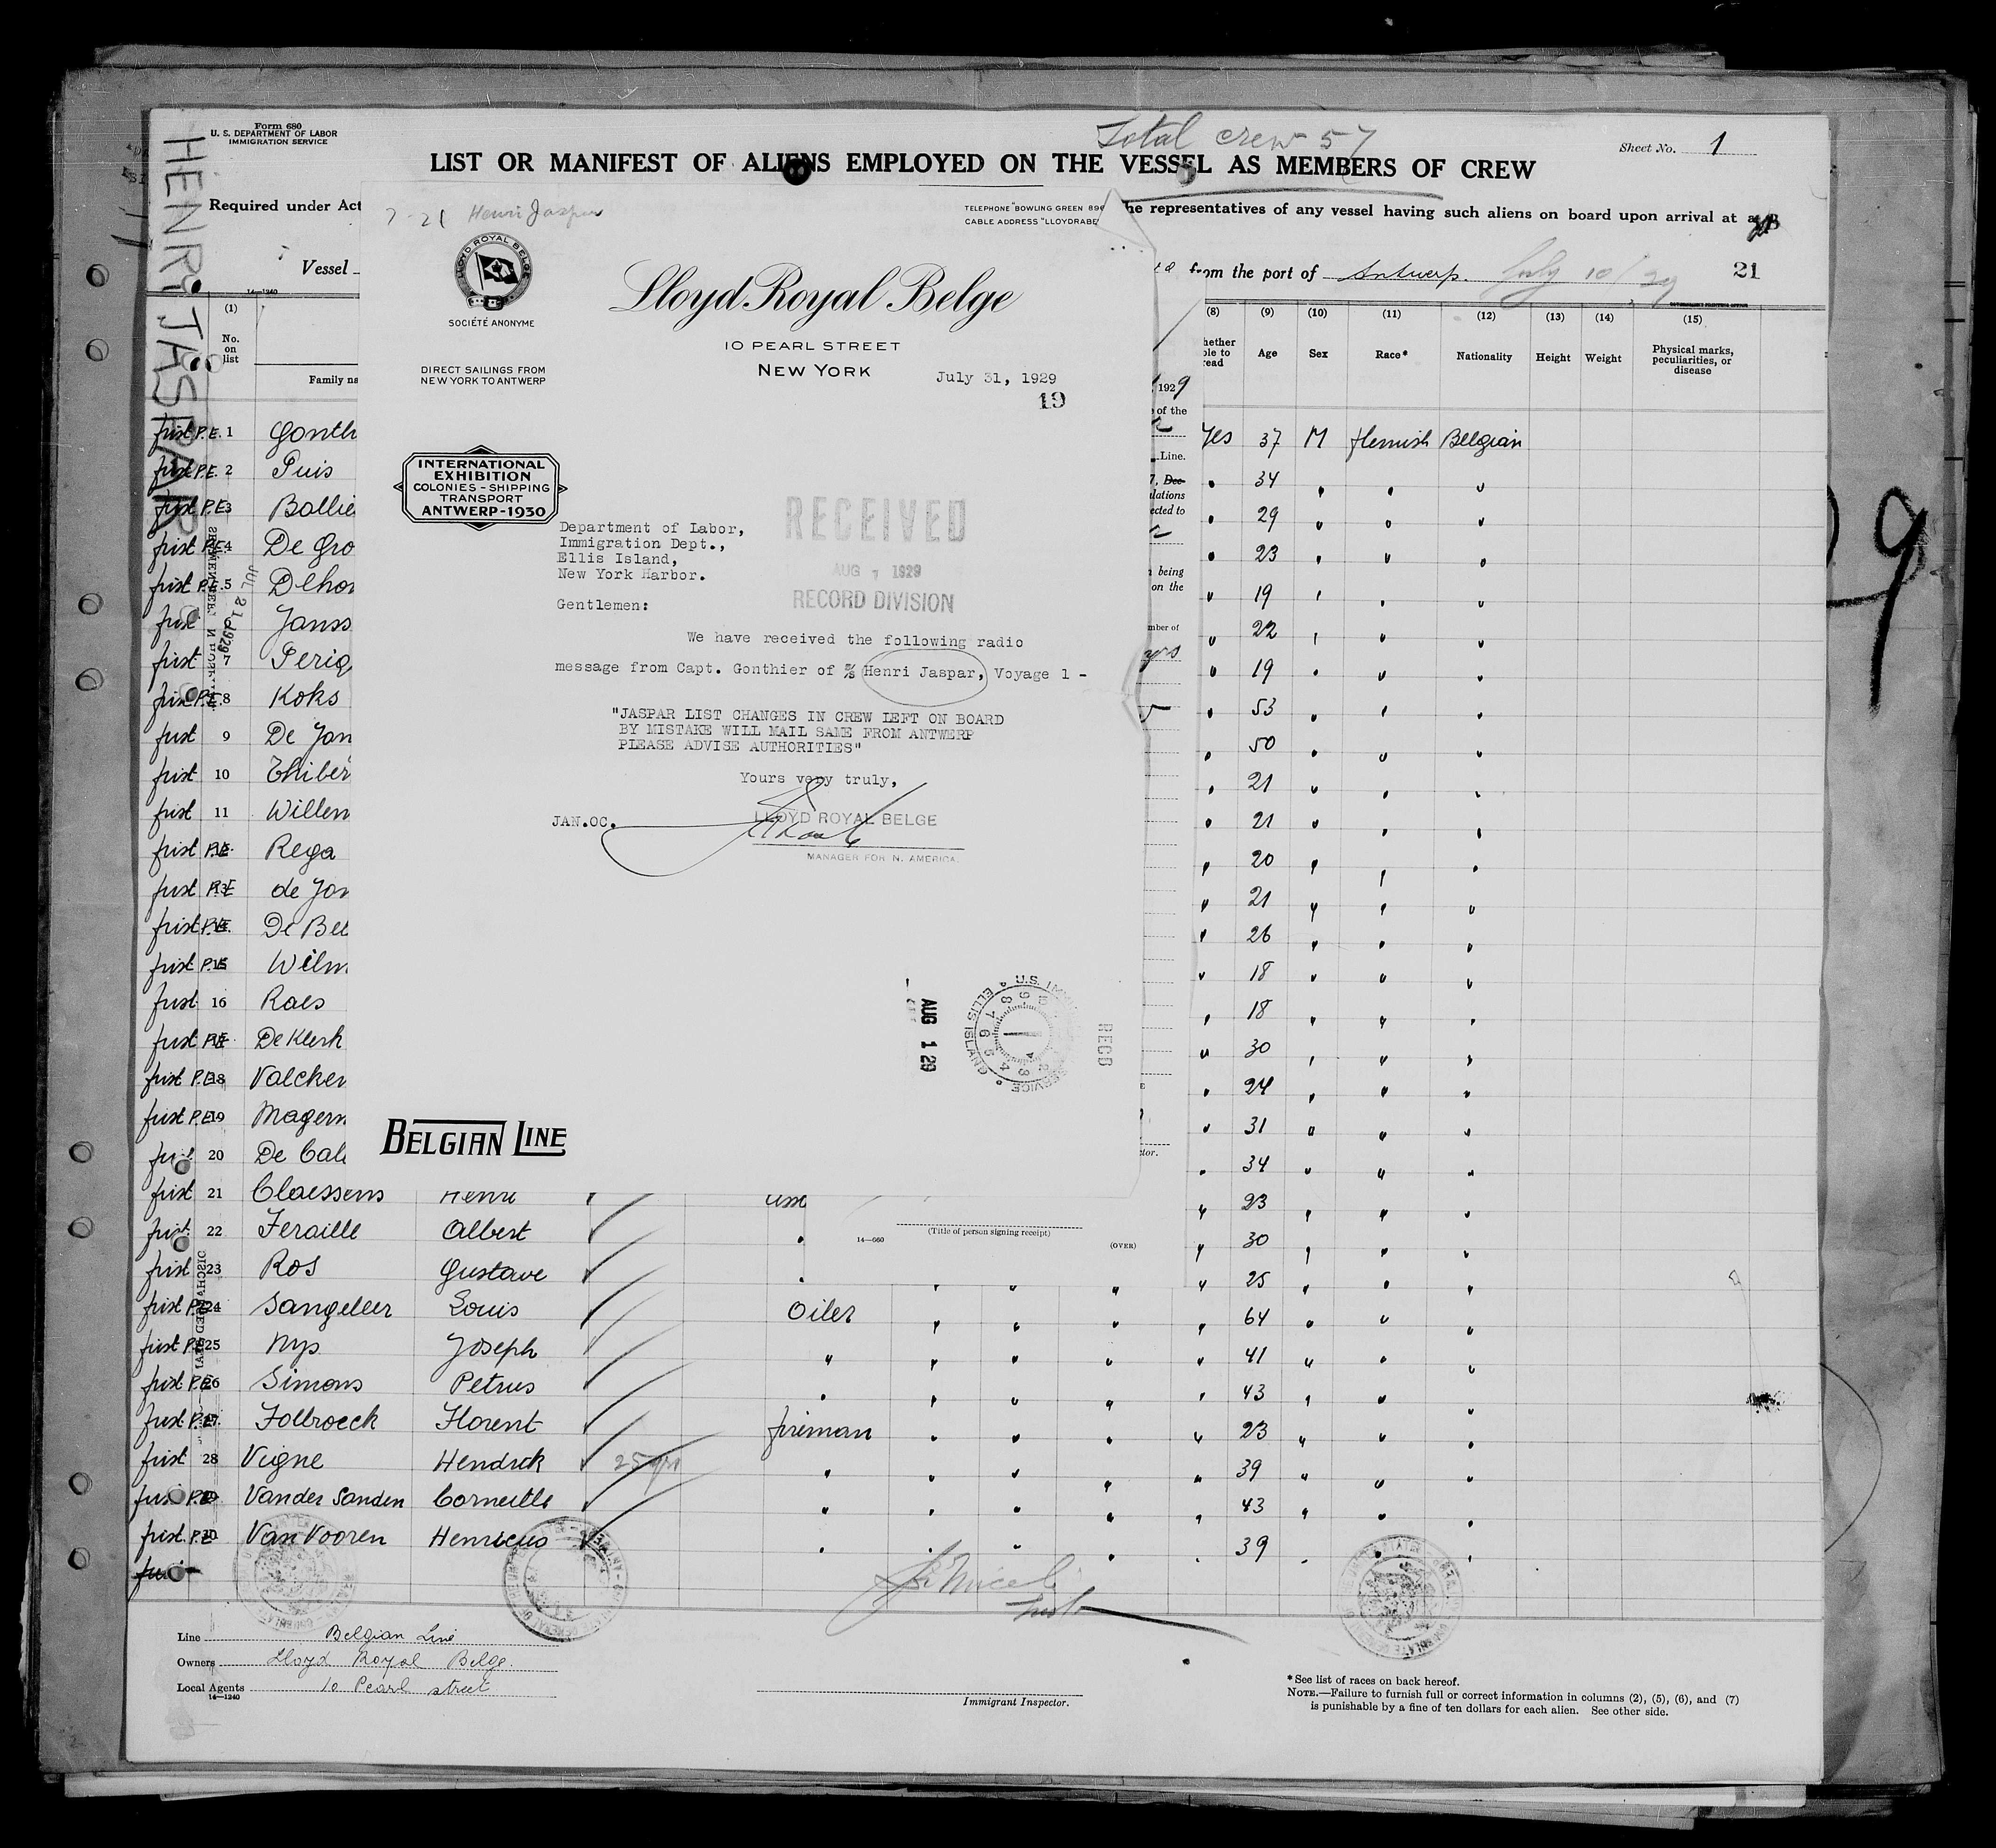 Total crew 57
Form 680
U. S. DEPARTMENT OF LABOR
IMMIGRATION SERVICE
Sheet No. 1
LIST OR MANIFEST OF ALIENS EMPLOYED ON THE VESSEL AS MEMBERS OF CREW
Required under Act
the representatives of any vessel having such aliens on board upon arrival at a
HENRI JASPAR
Vessel
from the port of Antwerp. July 10/29
21
14—1240
7-21 Henri Jaspar
TELEPHONE "BOWLING GREEN 896
CABLE ADDRESS "LLOYDRABE
LLOYD ROYAL BELGE
SOCIÉTÉ ANONYME
Lloyd Royal Belge
10 PEARL STREET
NEW YORK
DIRECT SAILINGS FROM
NEW YORK TO ANTWERP
July 31, 1929
19
INTERNATIONAL
EXHIBITION
COLONIES - SHIPPING
TRANSPORT
ANTWERP - 1930
RECEIVED
AUG 7 1929
RECORD DIVISION
Department of Labor,
Immigration Dept.,
Ellis Island,
New York Harbor.
Gentlemen:
We have received the following radio
message from Capt. Gonthier of S/S Henri Jaspar, Voyage 1 -
"JASPAR LIST CHANGES IN CREW LEFT ON BOARD
BY MISTAKE WILL MAIL SAME FROM ANTWERP
PLEASE ADVISE AUTHORITIES"
Yours very truly,
JAN.OC.
LLOYD ROYAL BELGE
MANAGER FOR N. AMERICA.
AUG 1 29
RECD
ELLIS ISLAND
BELGIAN LINE
(1) (8) (9) (10) (11) (12) (13) (14) (15)
No. on list
Family na
hether
ble to
read
Age Sex Race* Nationality Height Weight Physical marks, peculiarities, or disease
1929
of the
Line.
lations
ected to
being
on the
mber of
yrs
tor.
JUL 21 1929
first P.E. 1 Gonth Yes 37 M Flemish Belgian
first P.E. 2 Puis " 34 " " "
first P.E. 3 Bollie " 29 " " "
first P.E. 4 De Gro " 23 " " "
first P.E. 5 Dlhor " 19 " " "
first Janss " 22 " " "
first 7 Perig " 19 " " "
first P.E. 8 Koks " 53 " " "
first 9 De Jon " 50 " " "
first 10 Thiber " 21 " " "
first 11 Willem " 21 " " "
first P.E. Rega " 20 " " "
first P.E. 13 de Jon " 21 " " "
first P.E. De Bee " 26 " " "
first P.E. 15 Wilm " 18 " " "
first 16 Roes " 18 " " "
first P.E. De Klerk " 30 " " "
first P.E. 18 Valcken " 24 " " "
first P.E. 19 Magerm " 31 " " "
first 20 De Cal " 34 " " "
first 21 Claessens Henri " 23 " " "
first 22 Feraille Albert " " 30 " " "
first 23 Ros Gustave " " " " " 25 " " "
first P.E. 24 Sangeleer Louis Oiler " " " " 64 " " "
first P.E. 25 Nys Joseph " " " " " 41 " " "
first P.E. 26 Simons Petrus " " " " " 43 " " "
first P.E. 27 Folbroeck Florent fireman " " " " 23 " " "
first 28 Vigne Hendrik " " " " " 39 " " "
first P.E. 29 Vander Sanden Corneille " " " " " 43 " " "
first P.E. 30 Van Vooren Henricus " " " " " 39 " " "
14—660
(Title of person signing receipt)
(OVER)
Line Belgian Line
Owners Lloyd Royal Belge.
Local Agents 10 Pearl street
14—1240
Immigrant Inspector.
*See list of races on back hereof.
NOTE.—Failure to furnish full or correct information in columns (2), (5), (6), and (7)
is punishable by a fine of ten dollars for each alien. See other side.